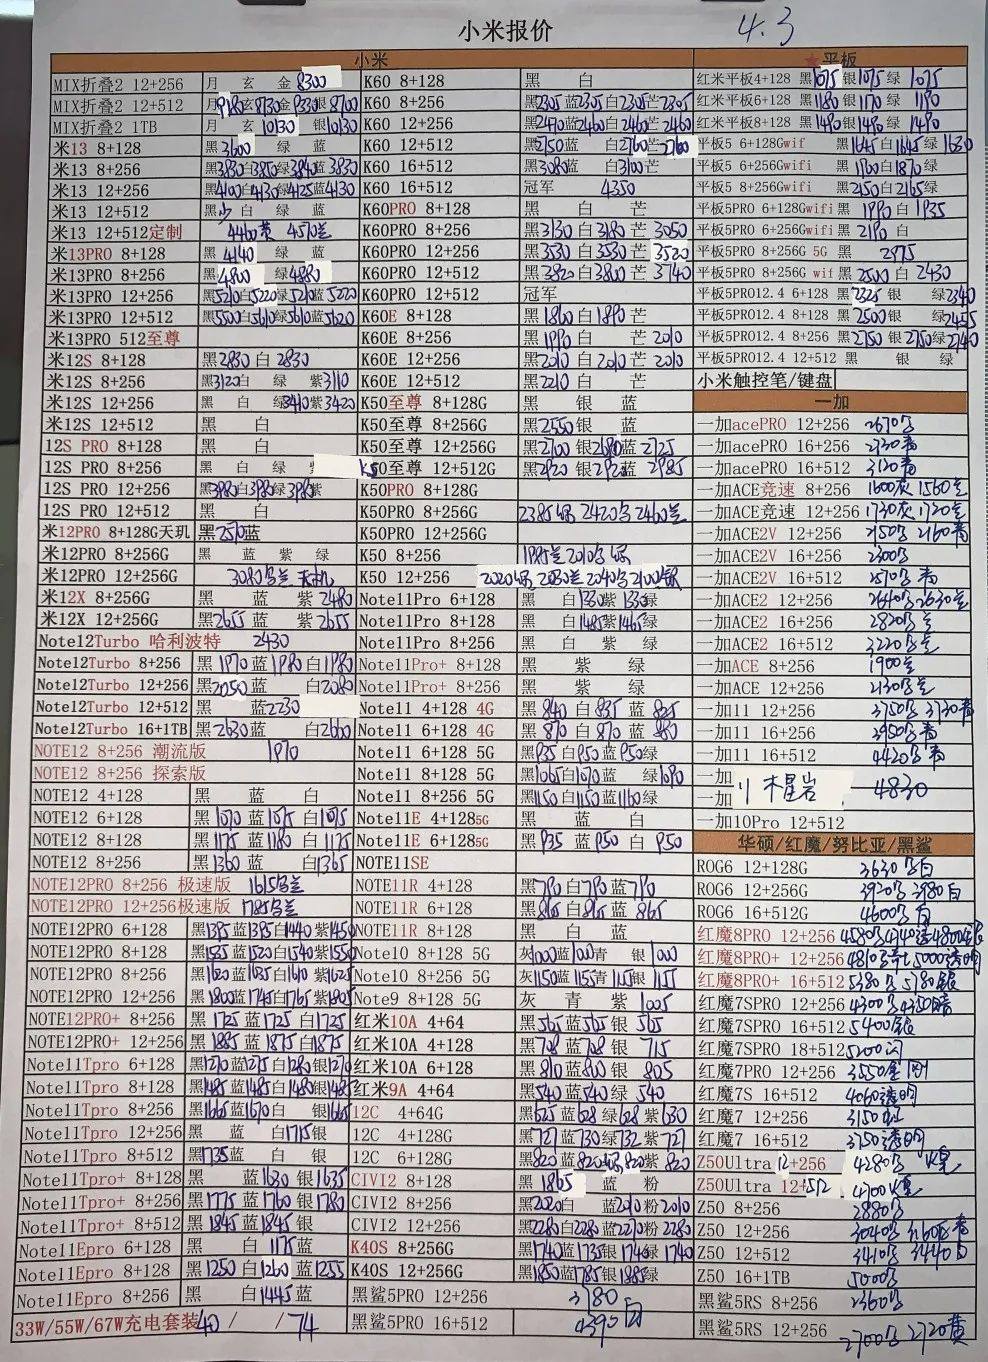 小米报价
4.3
小米
平板
MIX折叠2 12+256 月 玄 金 8300
K60 8+128 黑 白
红米平板4+128 黑1075 银1075 绿 1075
MIX折叠2 12+512
K60 8+256 黑2305 蓝2305 白2305 芒2305
红米平板6+128 黑1180 银1170 绿 1190
MIX折叠2 1TB 月 玄10130 银10130
K60 12+256 黑2470 蓝2460 白2460 芒2460
红米平板8+128 黑1490 银1490 绿 1490
米13 8+128 黑3600 绿 蓝
K60 12+512 黑2750 蓝 白2760 芒2760
平板5 6+128Gwif 黑1645 白1645 绿1630
米13 8+256 黑3830 白3850 绿3840 蓝3830
K60 16+512 黑3080 蓝 白3100 芒
平板5 6+256Gwifi 黑1960 白1870 绿
米13 12+256 黑4100 白4130 绿4125 蓝4130
K60 16+512 冠军 4350
平板5 8+256Gwifi 黑2150 白2165 绿
米13 12+512 黑 白 绿 蓝
K60PRO 8+128 黑 白 芒
平板5PRO 6+128Gwifi 黑 1990 白 1935
米13 12+512定制
K60PRO 8+256 黑3130 白3180 芒 3050
平板5PRO 6+256Gwifi 黑 2190 白
米13PRO 8+128 黑4140 绿 蓝
K60PRO 12+256 黑3530 白3530 芒 3520
平板5PRO 8+256G 5G 黑 2975
米13PRO 8+256 黑4800 绿4880
K60PRO 12+512 黑3820 白3800 芒 3740
平板5PRO 8+256G wif 黑 2500 白 2430
米13PRO 12+256 黑5210 白5220 绿5210 蓝5220
K60PRO 12+512 冠军
平板5PRO12.4 6+128 黑 2325 银 绿2340
米13PRO 12+512 黑5500 白5610 绿5610 蓝5620
K60E 8+128 黑1860 白1890 芒
平板5PRO12.4 8+128 黑 2500 银 绿2455
米13PRO 512至尊
K60E 8+256 黑1990 白 芒 2010
平板5PRO12.4 8+256 黑 2750 银2750 绿2740
米12S 8+128 黑2830 白 2830
K60E 12+256 黑2010 白2010 芒 2010
平板5PRO12.4 12+512 黑 银 绿
米12S 8+256 黑3120 白 绿 紫3110
K60E 12+512 黑2210 白 芒
小米触控笔/键盘
米12S 12+256 黑 白 绿3410 紫3420
K50至尊 8+128G 黑 银 蓝
一加
米12S 12+512 黑 白
K50至尊 8+256G 黑2550 银 蓝
一加acePRO 12+256 2670乌
12S PRO 8+128 黑 白
K50至尊 12+256G 黑2700 银2690 蓝 2725
一加acePRO 16+256 2730青
12S PRO 8+256 黑 白 绿
K50至尊 12+512G 黑2920 银2925 蓝 2985
一加acePRO 16+512 3120青
12S PRO 12+256 黑3980 白3980 绿3980 紫
K50PRO 8+128G
一加ACE竞速 8+256 1600灰 1560兰
12S PRO 12+512 黑 白
K50PRO 8+256G 2385银 2420乌 2460兰
一加ACE竞速 12+256 1730灰 1720兰
米12PRO 8+128G天玑 黑2570 蓝
K50PRO 12+256G
一加ACE2V 12+256 2150乌 2160青
米12PRO 8+256G 黑 蓝 紫 绿
K50 8+256 1985兰 2010乌 银
一加ACE2V 16+256 2300乌
米12PRO 12+256G 3080乌兰 天玑
K50 12+256 2020银 2030兰 2040乌 2100银
一加ACE2V 16+512 2570乌 青
米12X 8+256G 黑 蓝 紫 2480
Note11Pro 6+128 黑 白1330 紫1330 绿
一加ACE2 12+256 2640乌 2630兰
米12X 12+256G 黑2655 蓝 紫 2655
Note11Pro 8+128 黑 白1485 紫1465 绿
一加ACE2 16+256 2820乌兰
Note12Turbo 哈利波特 2430
Note11Pro 8+256 黑 白 紫 绿
一加ACE2 16+512 3220乌兰
Note12Turbo 8+256 黑 1970 蓝1980 白1980
Note11Pro+ 8+128 黑 紫 绿
一加ACE 8+256 1900兰
Note12Turbo 12+256 黑2050 蓝 白2080
Note11Pro+ 8+256 黑 紫 绿
一加ACE 12+256 2130乌兰
Note12Turbo 12+512 黑 蓝2230
Note11 4+128 4G 黑 840 白 835 蓝 825
一加11 12+256 3750乌 3730青
Note12Turbo 16+1TB 黑2630 蓝 白2660
Note11 6+128 4G 黑 870 白 870 蓝 880
一加11 16+256 3950乌青
NOTE12 8+256 潮流版 1970
Note11 6+128 5G 黑935 白950 蓝950 绿
一加11 16+512 4420乌青
NOTE12 8+256 探索版
Note11 8+128 5G 黑1065 白1070 蓝 绿1090
一加 11 木星岩 4830
NOTE12 4+128 黑 蓝 白
Note11 8+256 5G 黑1150 白1150 蓝1160 绿
一加
NOTE12 6+128 黑 1070 蓝 1075 白1075
Note11E 4+1285G 黑 蓝 白
一加10Pro 12+512
NOTE12 8+128 黑 1175 蓝 1180 白 1175
Note11E 6+1285G 黑 935 蓝 950 白 950
华硕/红魔/努比亚/黑鲨
NOTE12 8+256 黑1360 蓝 白1365
NOTE11SE
ROG6 12+128G 3630乌白
NOTE12PRO 8+256 极速版 1615乌兰
NOTE11R 4+128 黑790 白790 蓝790
ROG6 12+256G 3920乌 3980白
NOTE12PRO 12+256极速版 1785乌兰
NOTE11R 6+128 黑865 白865 蓝 865
ROG6 16+512G 4600乌 白
NOTE12PRO 6+128 黑1395 蓝1395 白1440 紫1450
NOTE11R 8+128 黑 白 蓝
红魔8PRO 12+256
NOTE12PRO 8+128 黑1535 蓝1520 白1540 紫1550
Note10 8+128 5G 灰1000 蓝1000 青 银1000
红魔8PRO+ 12+256
NOTE12PRO 8+256 黑1620 蓝1635 白1610 紫1625
Note10 8+256 5G 灰1150 蓝1155 青1155 银1155
红魔8PRO+ 16+512 5380乌 5780银
NOTE12PRO 12+256 黑1800 蓝1745 白1765 紫1805
Note9 8+128 5G 灰 青 紫 1005
红魔7SPRO 12+256
NOTE12PRO+ 8+256 黑 1725 蓝1725 白1725
红米10A 4+64 黑565 蓝565 银 565
红魔7SPRO 16+512 5400银
NOTE12PRO+ 12+256 黑 1885 蓝 1875 白1875
红米10A 4+128 黑708 蓝708 银 715
红魔7SPRO 18+512
Note11Tpro 6+128 黑1270 蓝1275 白1280 银1270
红米10A 6+128 黑810 蓝800 银 805
红魔7PRO 12+256
Note11Tpro 8+128 黑1485 蓝1485 白1480 银1485
红米9A 4+64 黑540 蓝540 绿 540
红魔7S 16+512 4060透明
Note11Tpro 8+256 黑1665 蓝1670 白 银1665
12C 4+64G 黑625 蓝628 绿628 紫630
红魔7 12+256
Note11Tpro 12+256 黑 蓝 白1715 银
12C 4+128G 黑727 蓝730 绿732 紫727
红魔7 16+512 3750透明
Note11Tpro 8+512 黑1735 蓝 白 银
12C 6+128G 黑820 蓝820 绿820 紫 820
Z50Ultra 12+256 4280乌
Note11Tpro+ 8+128 黑 蓝1630 银1635
CIVI2 8+128 黑 1865 蓝 粉
Z50Ultra 12+512
Note11Tpro+ 8+256 黑1775 蓝1760 银1780
CIVI2 8+256 黑2020 白 蓝2010 粉2010
Z50 8+256 2880乌
Note11Tpro+ 8+512 黑1845 蓝1845 银
CIVI2 12+256 黑2280 白2280 蓝2270 粉 2280
Z50 12+256 3040乌
Note11Epro 6+128 黑 白 1175 蓝
K40S 8+256G 黑1740 蓝1735 银1745 绿 1740
Z50 12+512 3410乌 3440白
Note11Epro 8+128 黑1250 白1260 蓝1255
K40S 12+256G 黑1850 蓝1785 银1885 绿
Z50 16+1TB 5000乌
Note11Epro 8+256 黑 白1445 蓝
黑鲨5PRO 12+256 3780
黑鲨5RS 8+256 2360乌
33W/55W/67W充电套装40 / / 74
黑鲨5PRO 16+512 4390白
黑鲨5RS 12+256 2700乌 2720黄